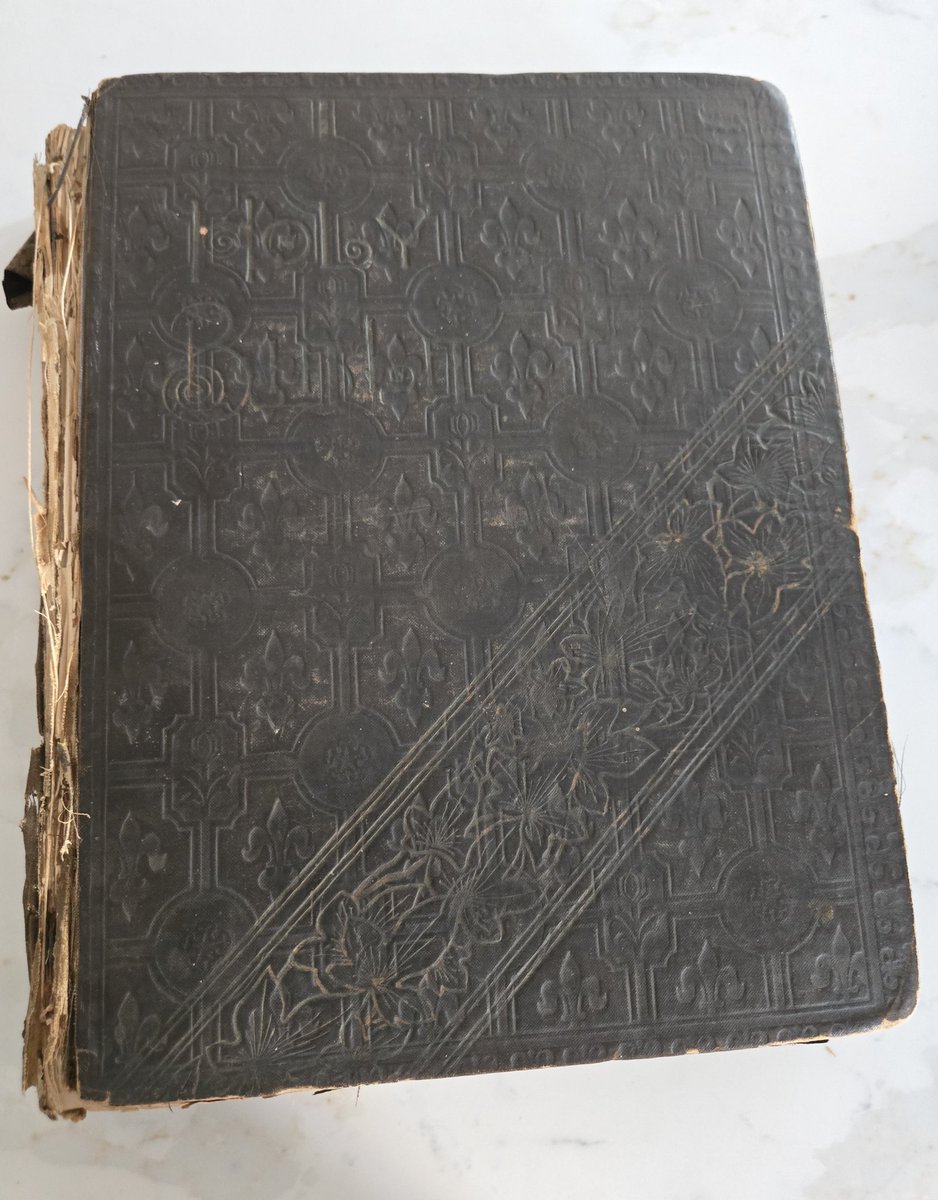 HOLY
BIBLE